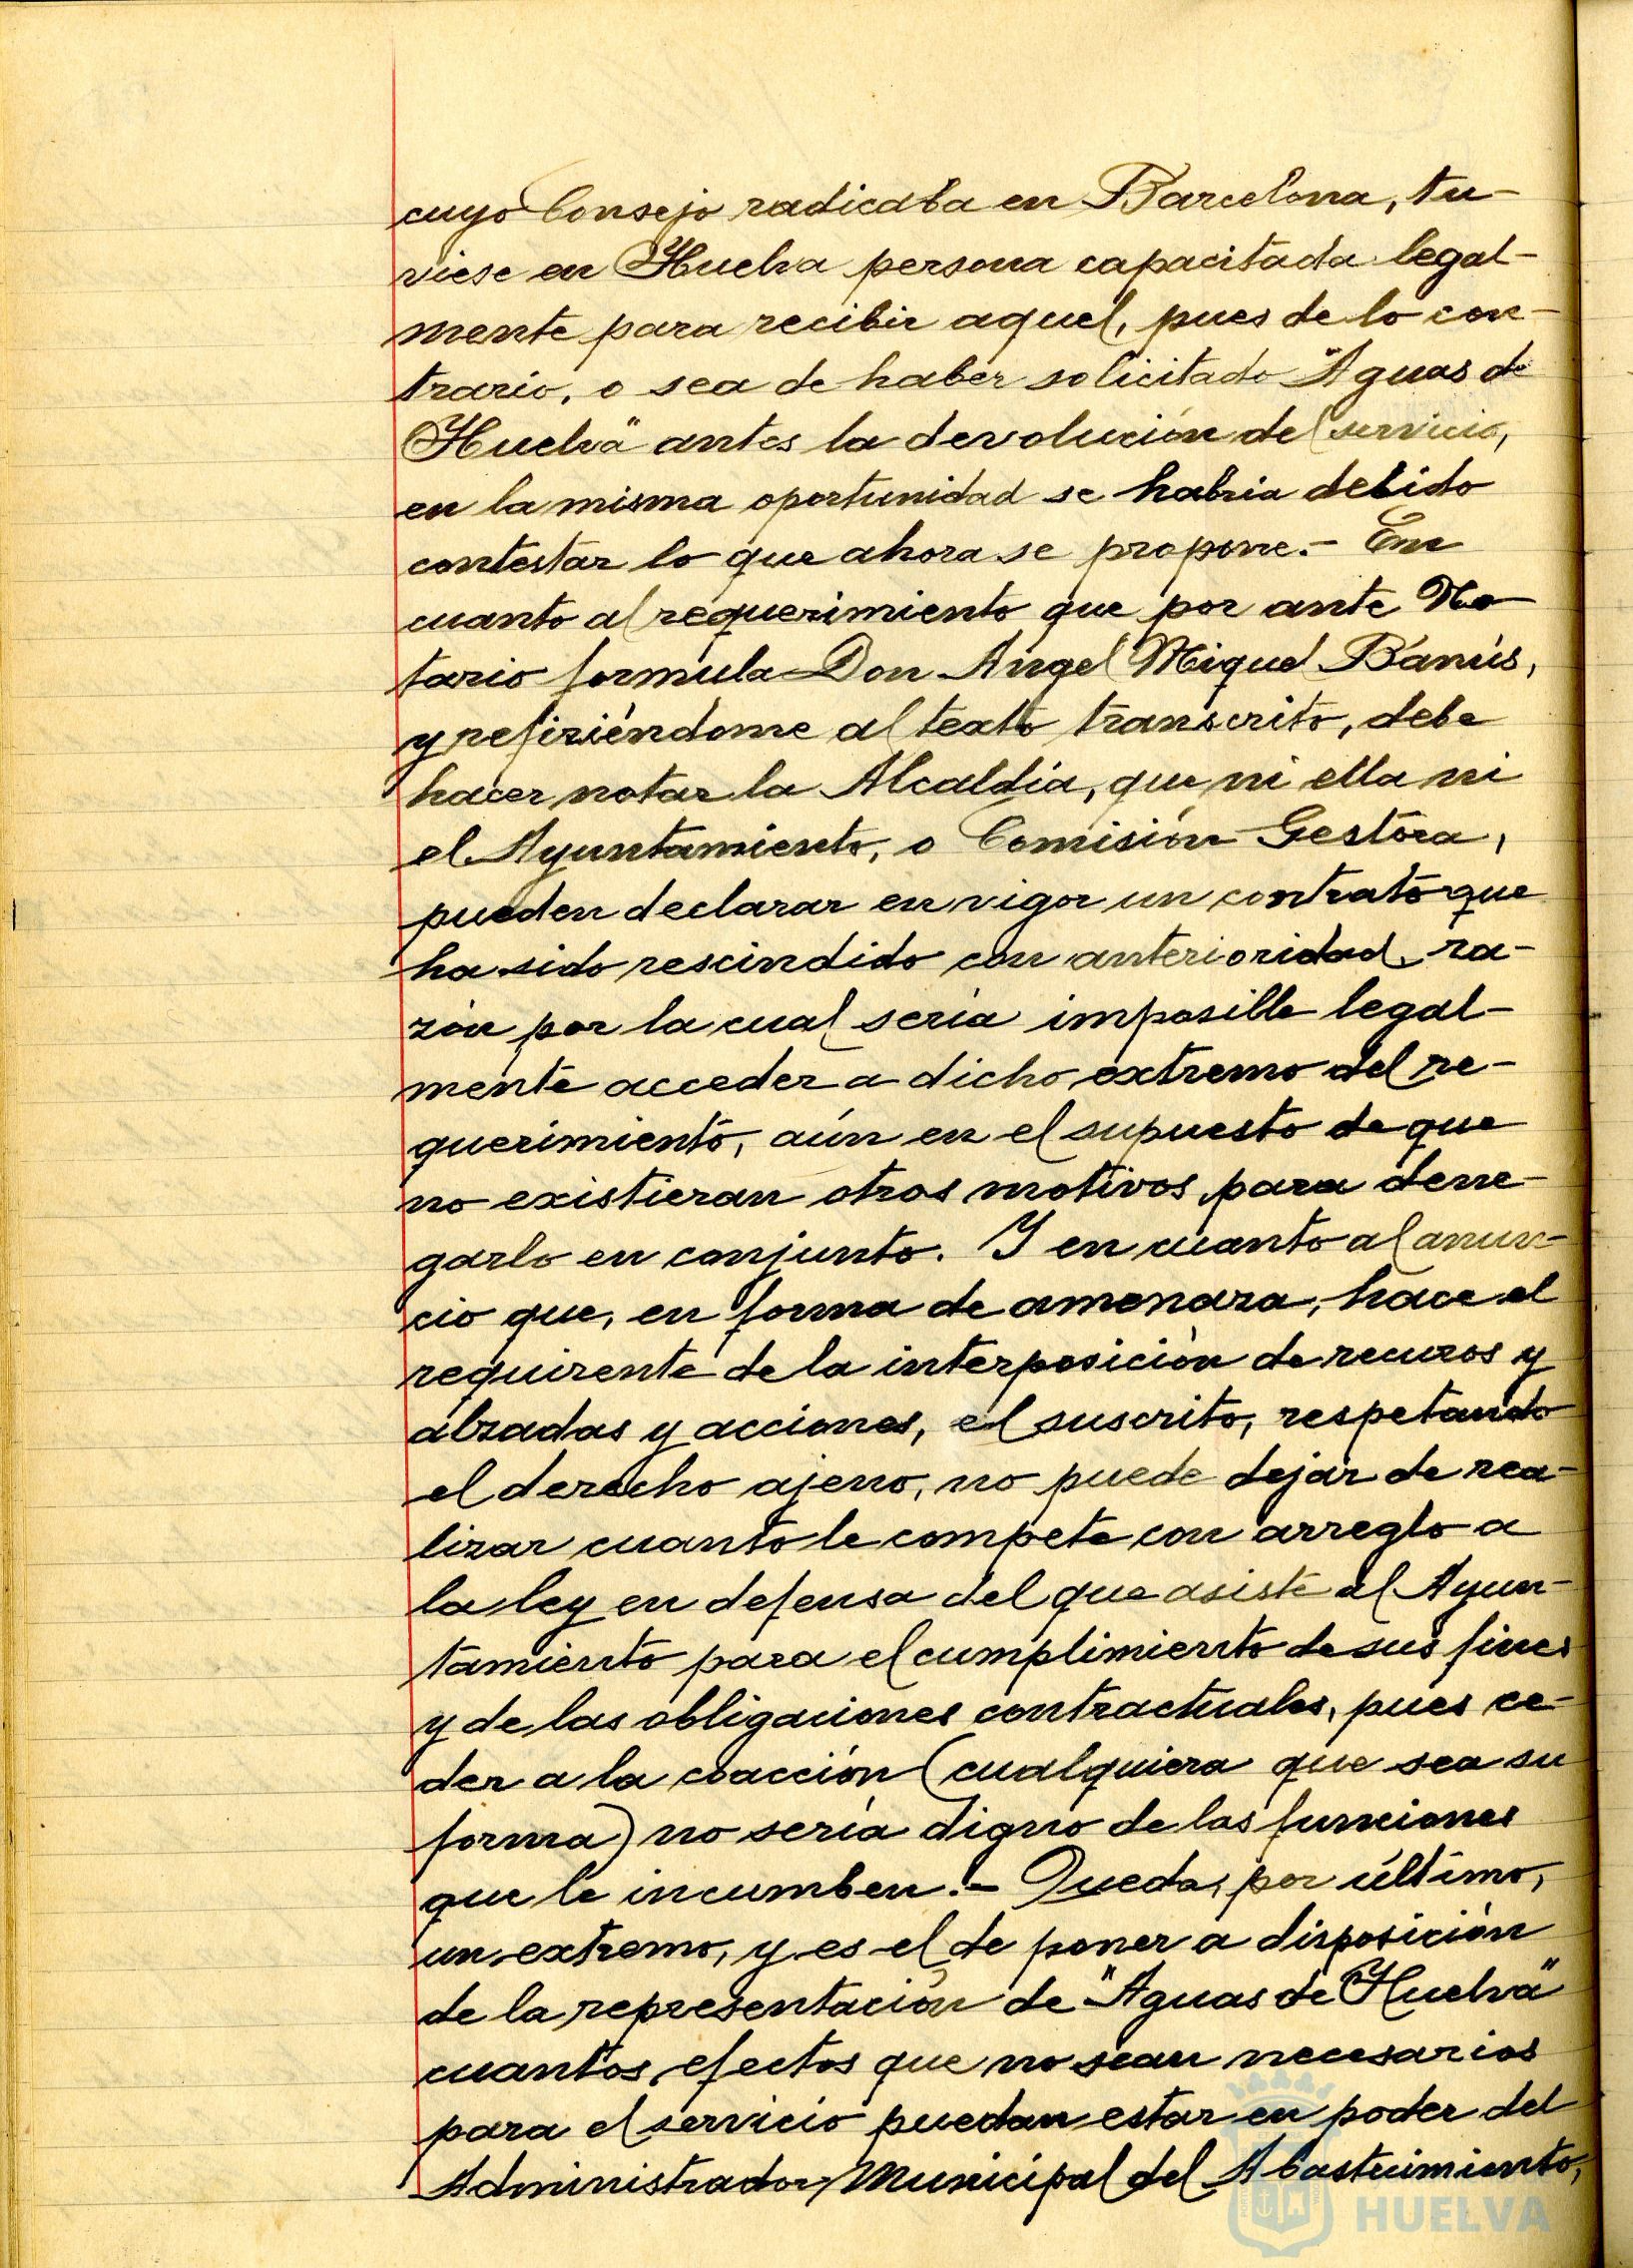 cuyo Consejo radicaba en Barcelona, tu-
viese en Huelva persona capacitada legal-
mente para recibir aquel, pues de lo con-
trario, o sea de haber solicitado "Aguas de
Huelva" antes la devolución del servicio,
en la misma oportunidad se habria debido
contestar lo que ahora se propone.- En
cuanto al requerimiento que por ante No-
tario formula Don Angel Miquel Banús,
y refiriéndome al texto transcrito, debe
hacer notar la Alcaldía, que ni ella ni
el Ayuntamiento, o Comisión Gestora,
pueden declarar en vigor un contrato que
ha sido rescindido con anterioridad, ra-
zón por la cual sería imposible legal-
mente acceder a dicho extremo del re-
querimiento, aún en el supuesto de que
no existieran otros motivos para dene-
garlo en conjunto. Y en cuanto al anun-
cio que, en forma de amenaza, hace el
requirente de la interposición de recuros y
alzadas y acciones, el suscrito, respetando
el derecho ajeno, no puede dejar de rea-
lizar cuanto le compete con arreglo a
la ley en defensa del que asiste al Ayun-
tamiento para el cumplimiento de sus fines
y de las obligaciones contractuales, pues ce-
der a la coacción (cualquiera que sea su
forma) no sería digno de las funciones
que le incumben.- Queda, por último,
un extremo, y es el de poner a disposición
de la representación de "Aguas de Huelva"
cuantos efectos que no sean necesarios
para el servicio puedan estar en poder del
Administrador Municipal del Abastecimiento,
HUELVA